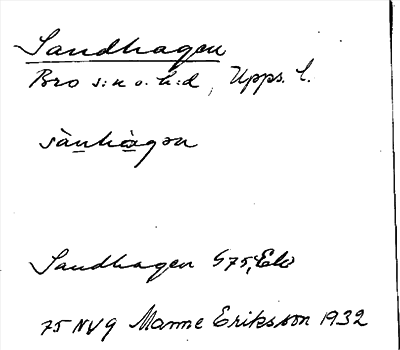 Sandhagen
Bro s:n o. h:d, Upps. l.
sànhàgən
Sandhagen G75, Ek
75 NV9 Manne Eriksson 1932